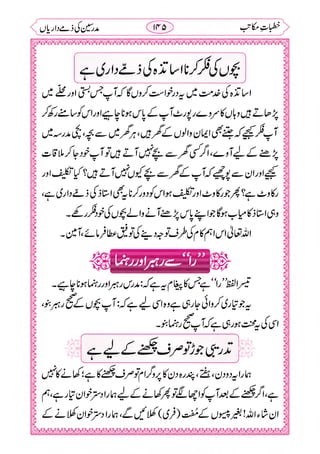 خطبات مکاتب ۱۴۵ مدرسین کی ذمے داریاں
بچوں کی فکر کرنا اساتذہ کی ذمّے داری ہے
اساتذہ کی خدمت میں یہ درخواست کروں گا کہ آپ جس بستی اور محلے میں
پڑھاتے ہیں وہاں کا سروے، رپورٹ آپ کے پاس ہونا چاہیے اور اس کو سامنے رکھ کر
آپ فکر کیجیے کہ جتنے بھی ایمان والوں کے گھر ہیں، ہر گھر میں سے بچے، بچی مدرسہ میں
پڑھنے کے لیے آوے، اگر کسی گھر سے بچے نہیں آتے ہیں تو آپ خود جا کر ملاقات
کیجیے اور ان سے پوچھیے کہ آپ کے گھر سے بچے کیوں نہیں آتے ہیں؟ کیا تکلیف اور
رکاوٹ ہے؟ پھر جو رکاوٹ اور تکلیف ہو اس کو دور کرنا یہ بھی استاذ کی ذمے داری ہے،
وہی استاذ کامیاب ہوگا جو اپنے پاس پڑھنے آنے والے بچوں کی خود فکر رکھے۔
اللہ تعالیٰ اس اہم کام کی طرف توجہ دینے کی توفیق عطا فرمائے، آمین۔
’’را‘‘ سے رہبر اور رہنما
تیسرا لفظ ’’را‘‘ ہے جس کا پیغام یہ ہے کہ: مدرس رہبر اور رہنما ہونا چاہیے۔
یہ جو تیاری کروائی جا رہی ہے وہ اسی لیے ہے کہ: آپ بچوں کے صحیح رہبر بنو،
یہ محنت ہو رہی ہے کہ آپ صحیح رہنما بنو۔
تدریبی جوڑ تو صرف چکھنے کے لیے ہے
ہمارا یہ دو دن، ہفتے، پندرہ دن کا پروگرام تو صرف چکھنے کا ہے؛ کھانے کا نہیں
ہے، اگر چکھنے کے بعد آپ کو اچھا لگے تو پھر کھانے کے لیے ہمارا دسترخوان تیار ہے، ہم
ان شاء اللہ! بغیر پیسوں کے مفت (فری) کھلائیں گے، ہمارا دسترخوان کھلانے کے